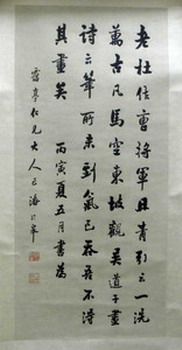 老杜仿曹將軍丹青引云一洗
萬古凡馬空東坡觀吳道子畫
詩云筆所未到氣已吞吾不得
其畫矣 丙寅夏五月書為
霱亭仁兄大人 潘